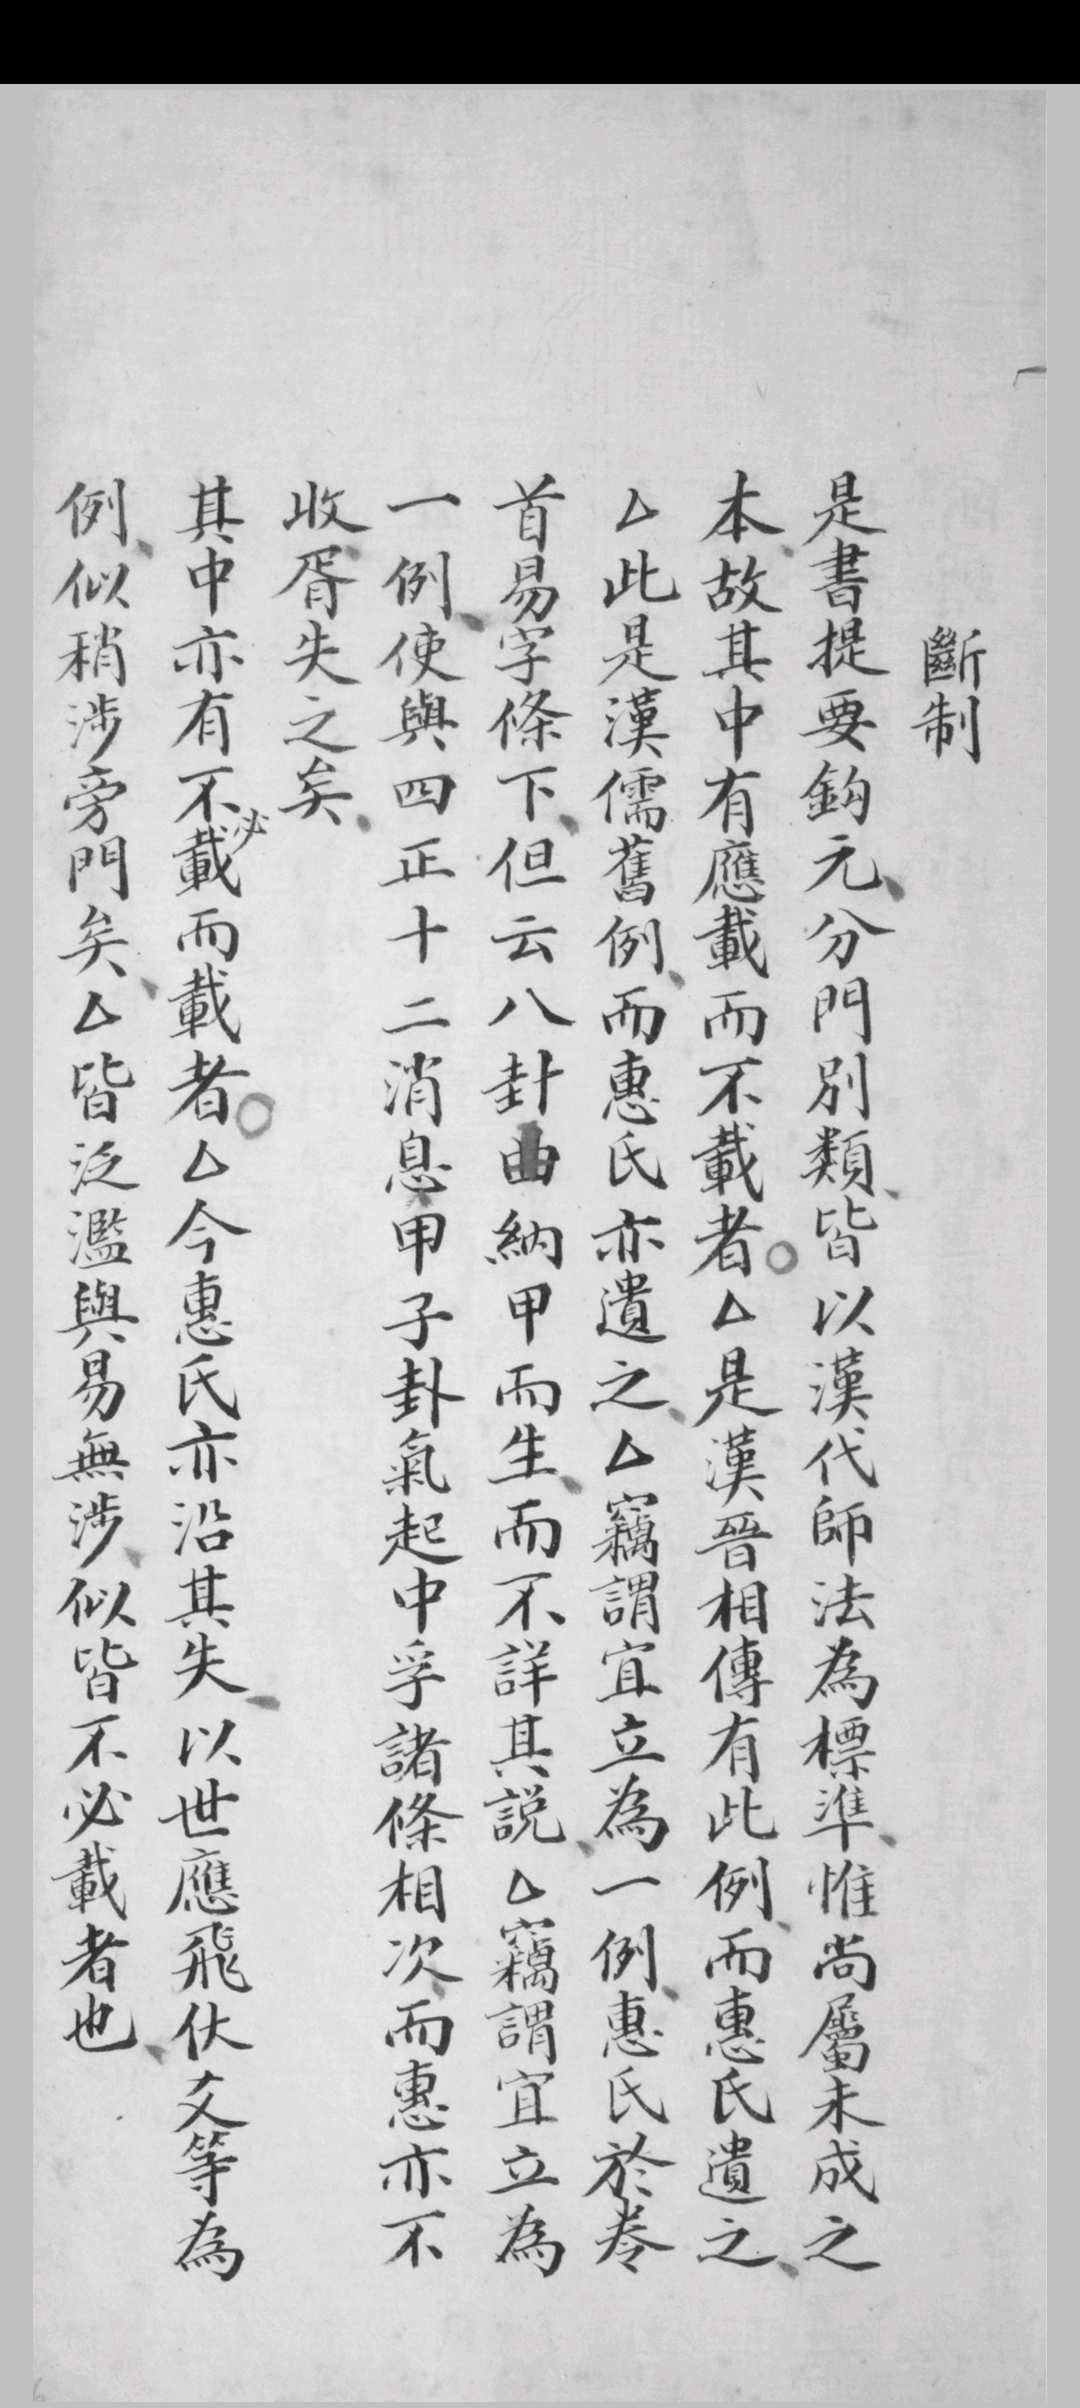 斷制
是書提要鈎元分門別類皆以漢代師法為標準惟尚屬未成之
本故其中有應載而不載者○△是漢晉相傳有此例而惠氏遺之
△此是漢儒舊例而惠氏亦遺之△竊謂宜立為一例惠氏於卷
首易字條下但云八卦由納甲而生而不詳其説△竊謂宜立為
一例使與四正十二消息甲子卦氣起中孚諸條相次而惠亦不
收胥失之矣
其中亦有不必載而載者○△今惠氏亦沿其失以世應飛伏爻等為
例似稍涉旁門矣△皆泛濫與易無涉似皆不必載者也